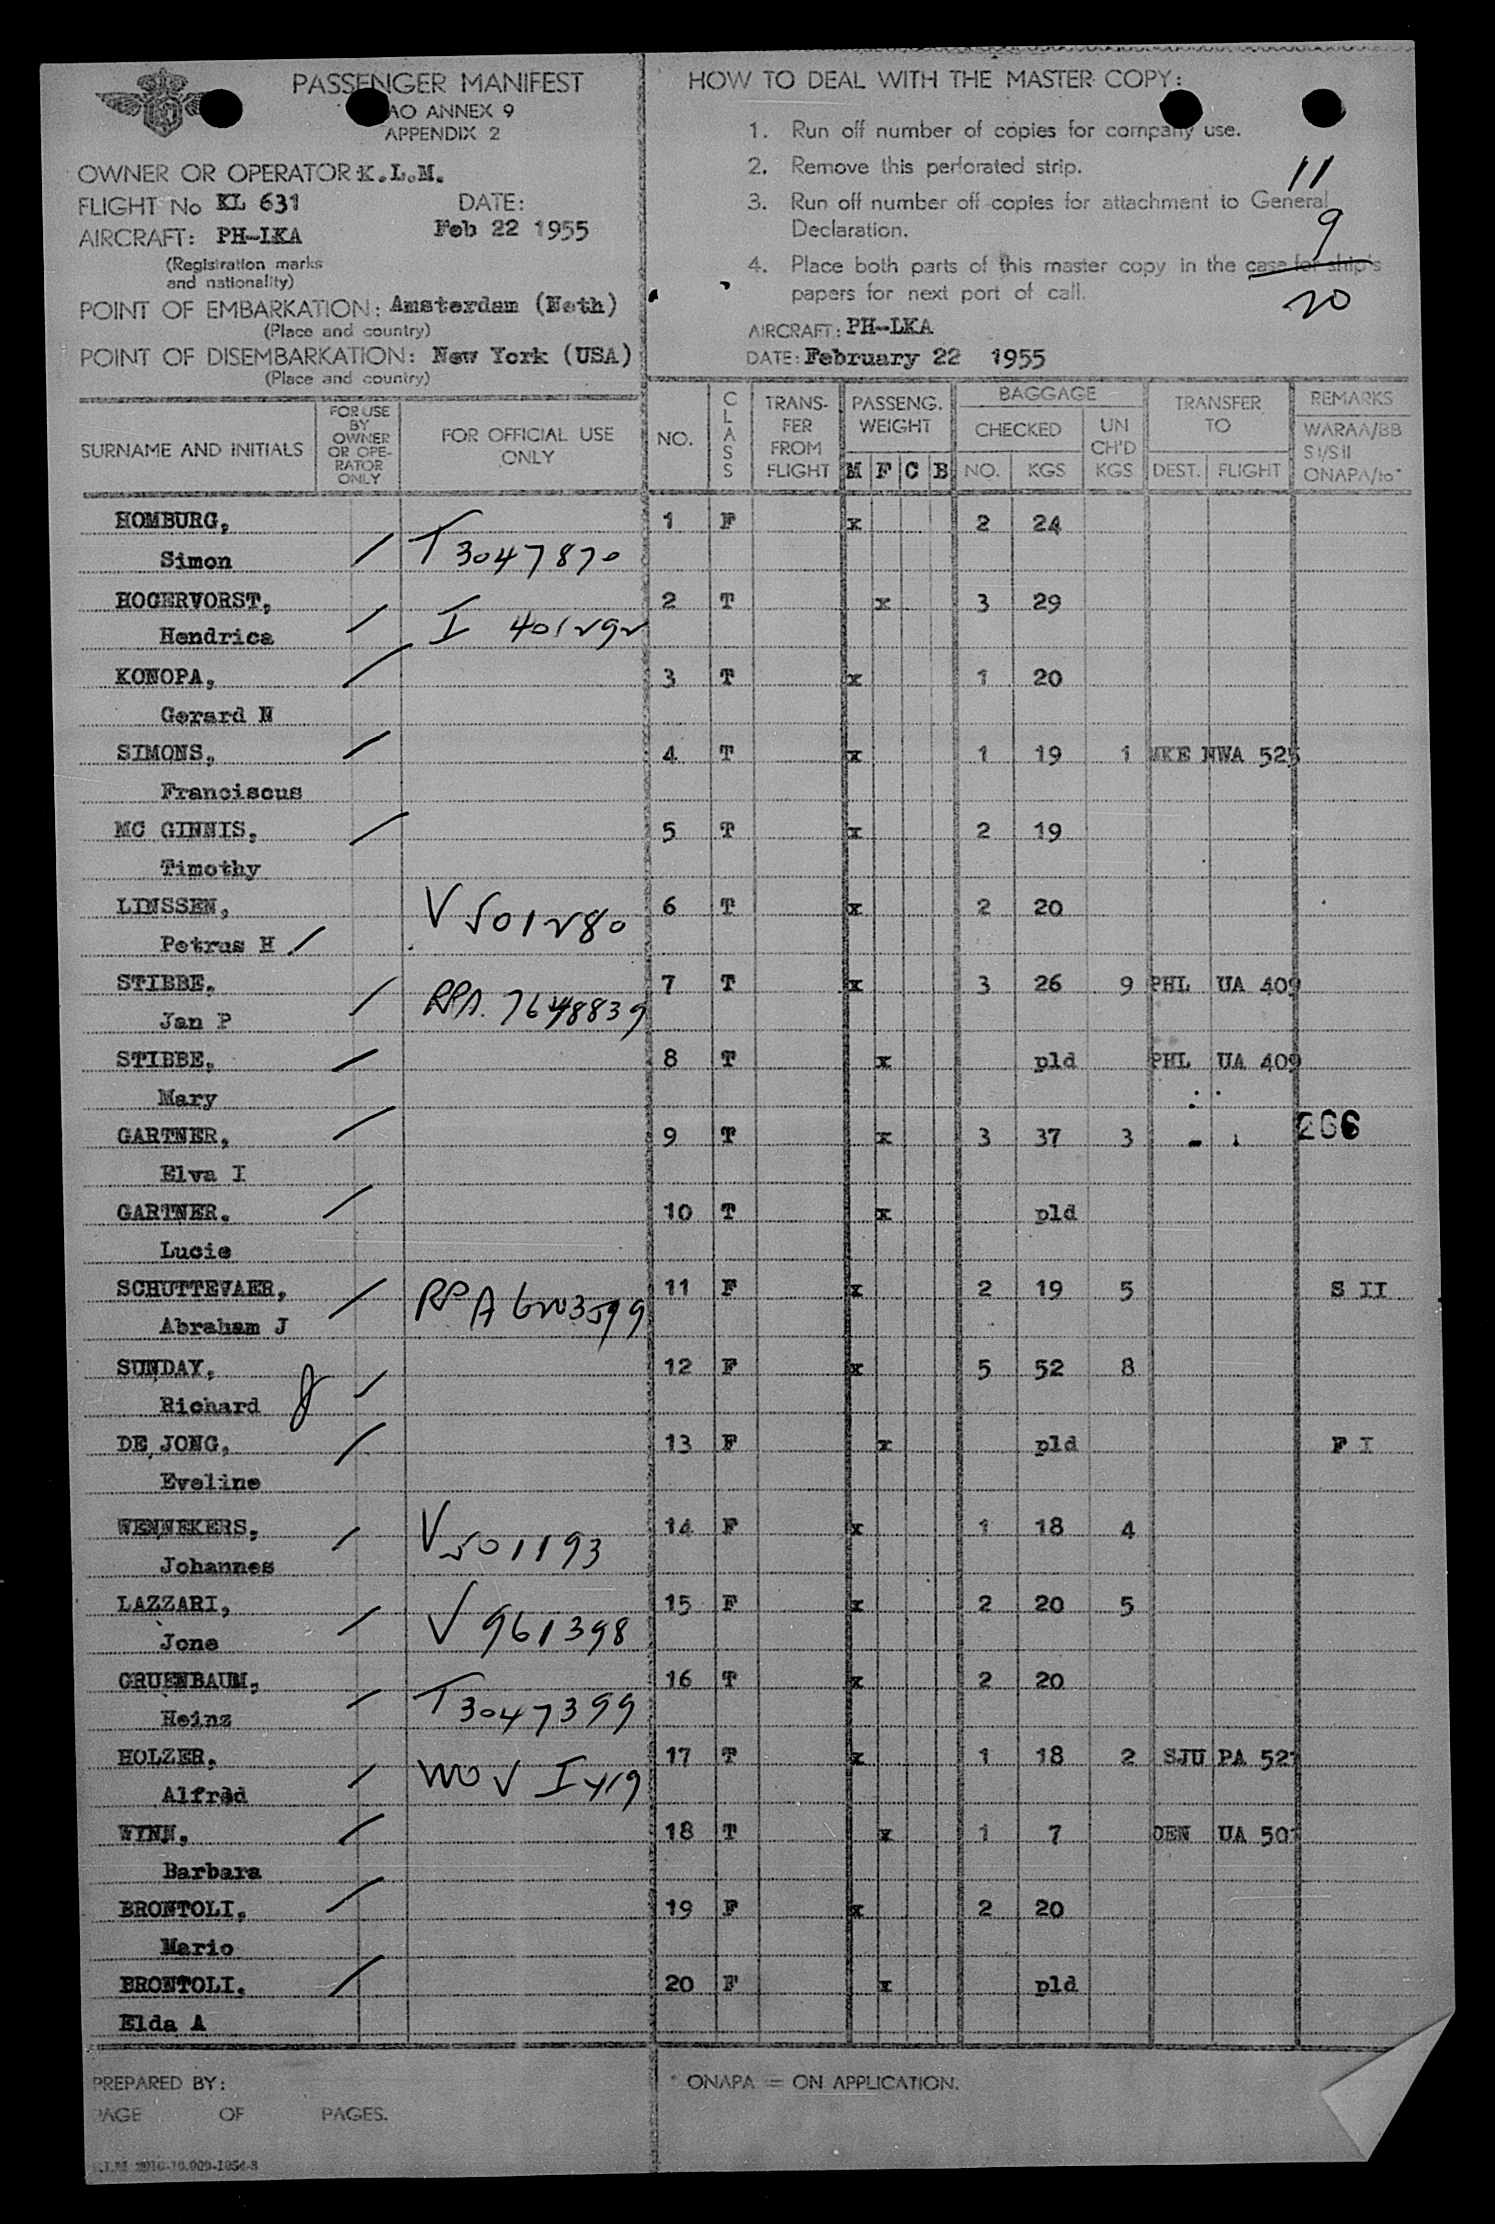 PASSENGER MANIFEST
AO ANNEX 9
APPENDIX 2
OWNER OR OPERATOR K.L.M.
FLIGHT No KL 631 DATE:
Feb 22 1955
AIRCRAFT: PH-LKA
(Registration marks
and nationality)
POINT OF EMBARKATION: Amsterdam (Neth)
(Place and country)
POINT OF DISEMBARKATION: New York (USA)
(Place and country)
HOW TO DEAL WITH THE MASTER COPY:
1. Run off number of copies for company use.
2. Remove this perforated strip.
11
3. Run off number off copies for attachment to General
Declaration.
9
4. Place both parts of this master copy in the case for ship's
papers for next port of call.
20
AIRCRAFT: PH-LKA
DATE: February 22 1955
SURNAME AND INITIALS
FOR USE
BY
OWNER
OR OPE-
RATOR
ONLY
FOR OFFICIAL USE
ONLY
NO.
CLASS
TRANS-
FER
FROM
FLIGHT
PASSENG.
WEIGHT
M F C B
BAGGAGE
CHECKED
NO. KGS
UN
CH'D
KGS
TRANSFER
TO
DEST. FLIGHT
REMARKS
WARAA/BB
SI/SII
ONAPA/to*
HOMBURG, 1 F x 2 24
Simon T 3047870
HOGERVORST, 2 T x 3 29
Hendrica I 401292
KONOPA, 3 T x 1 20
Gerard N
SIMONS, 4 T x 1 19 1 MKE NWA 525
Franciscus
MC GINNIS, 5 T x 2 19
Timothy
LINSSEN, V501280 6 T x 2 20
Petrus H
STIBBE, 7 T x 3 26 9 PHL UA 409
Jan P RPA.
STIBBE, 8 T x pld PHL UA 409
Mary
GARTNER, 9 T x 3 37 3 266
Elva I
GARTNER. 10 T x pld
Lucie
SCHUTTEVAER, 11 F x 2 19 5 S II
Abraham J RPA
SUNDAY, 12 F x 5 52 8
Richard J
DE JONG, 13 F x pld F I
Eveline
WENNEKERS, 14 F x 1 18 4
Johannes V501193
LAZZARI, 15 F x 2 20 5
Jone V 961398
GRUENBAUM, 16 T x 2 20
Heinz T3047399
HOLZER, 17 T x 1 18 2 SJU PA 521
Alfred
WYNN, 18 T x 1 7 DEN UA 501
Barbara
BRONTOLI, 19 F x 2 20
Mario
BRONTOLI. 20 F x pld
Elda A
PREPARED BY:
PAGE OF PAGES.
* ONAPA = ON APPLICATION.